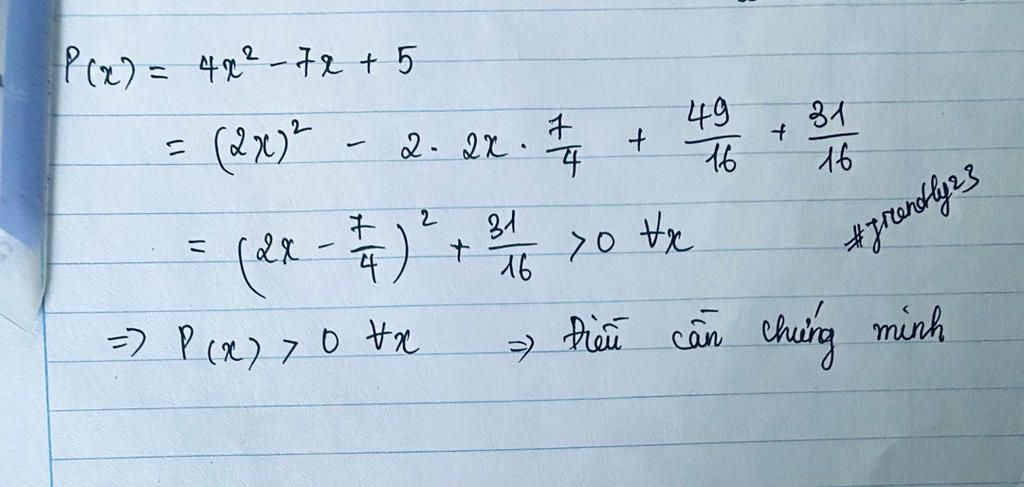 P(x) = 4x² - 7x + 5
= (2x)² - 2 . 2x . 7/4 + 49/16 + 31/16
= (2x - 7/4)² + 31/16 > 0 ∀x
#friendly23
=> P(x) > 0 ∀x => Điều cần chứng minh